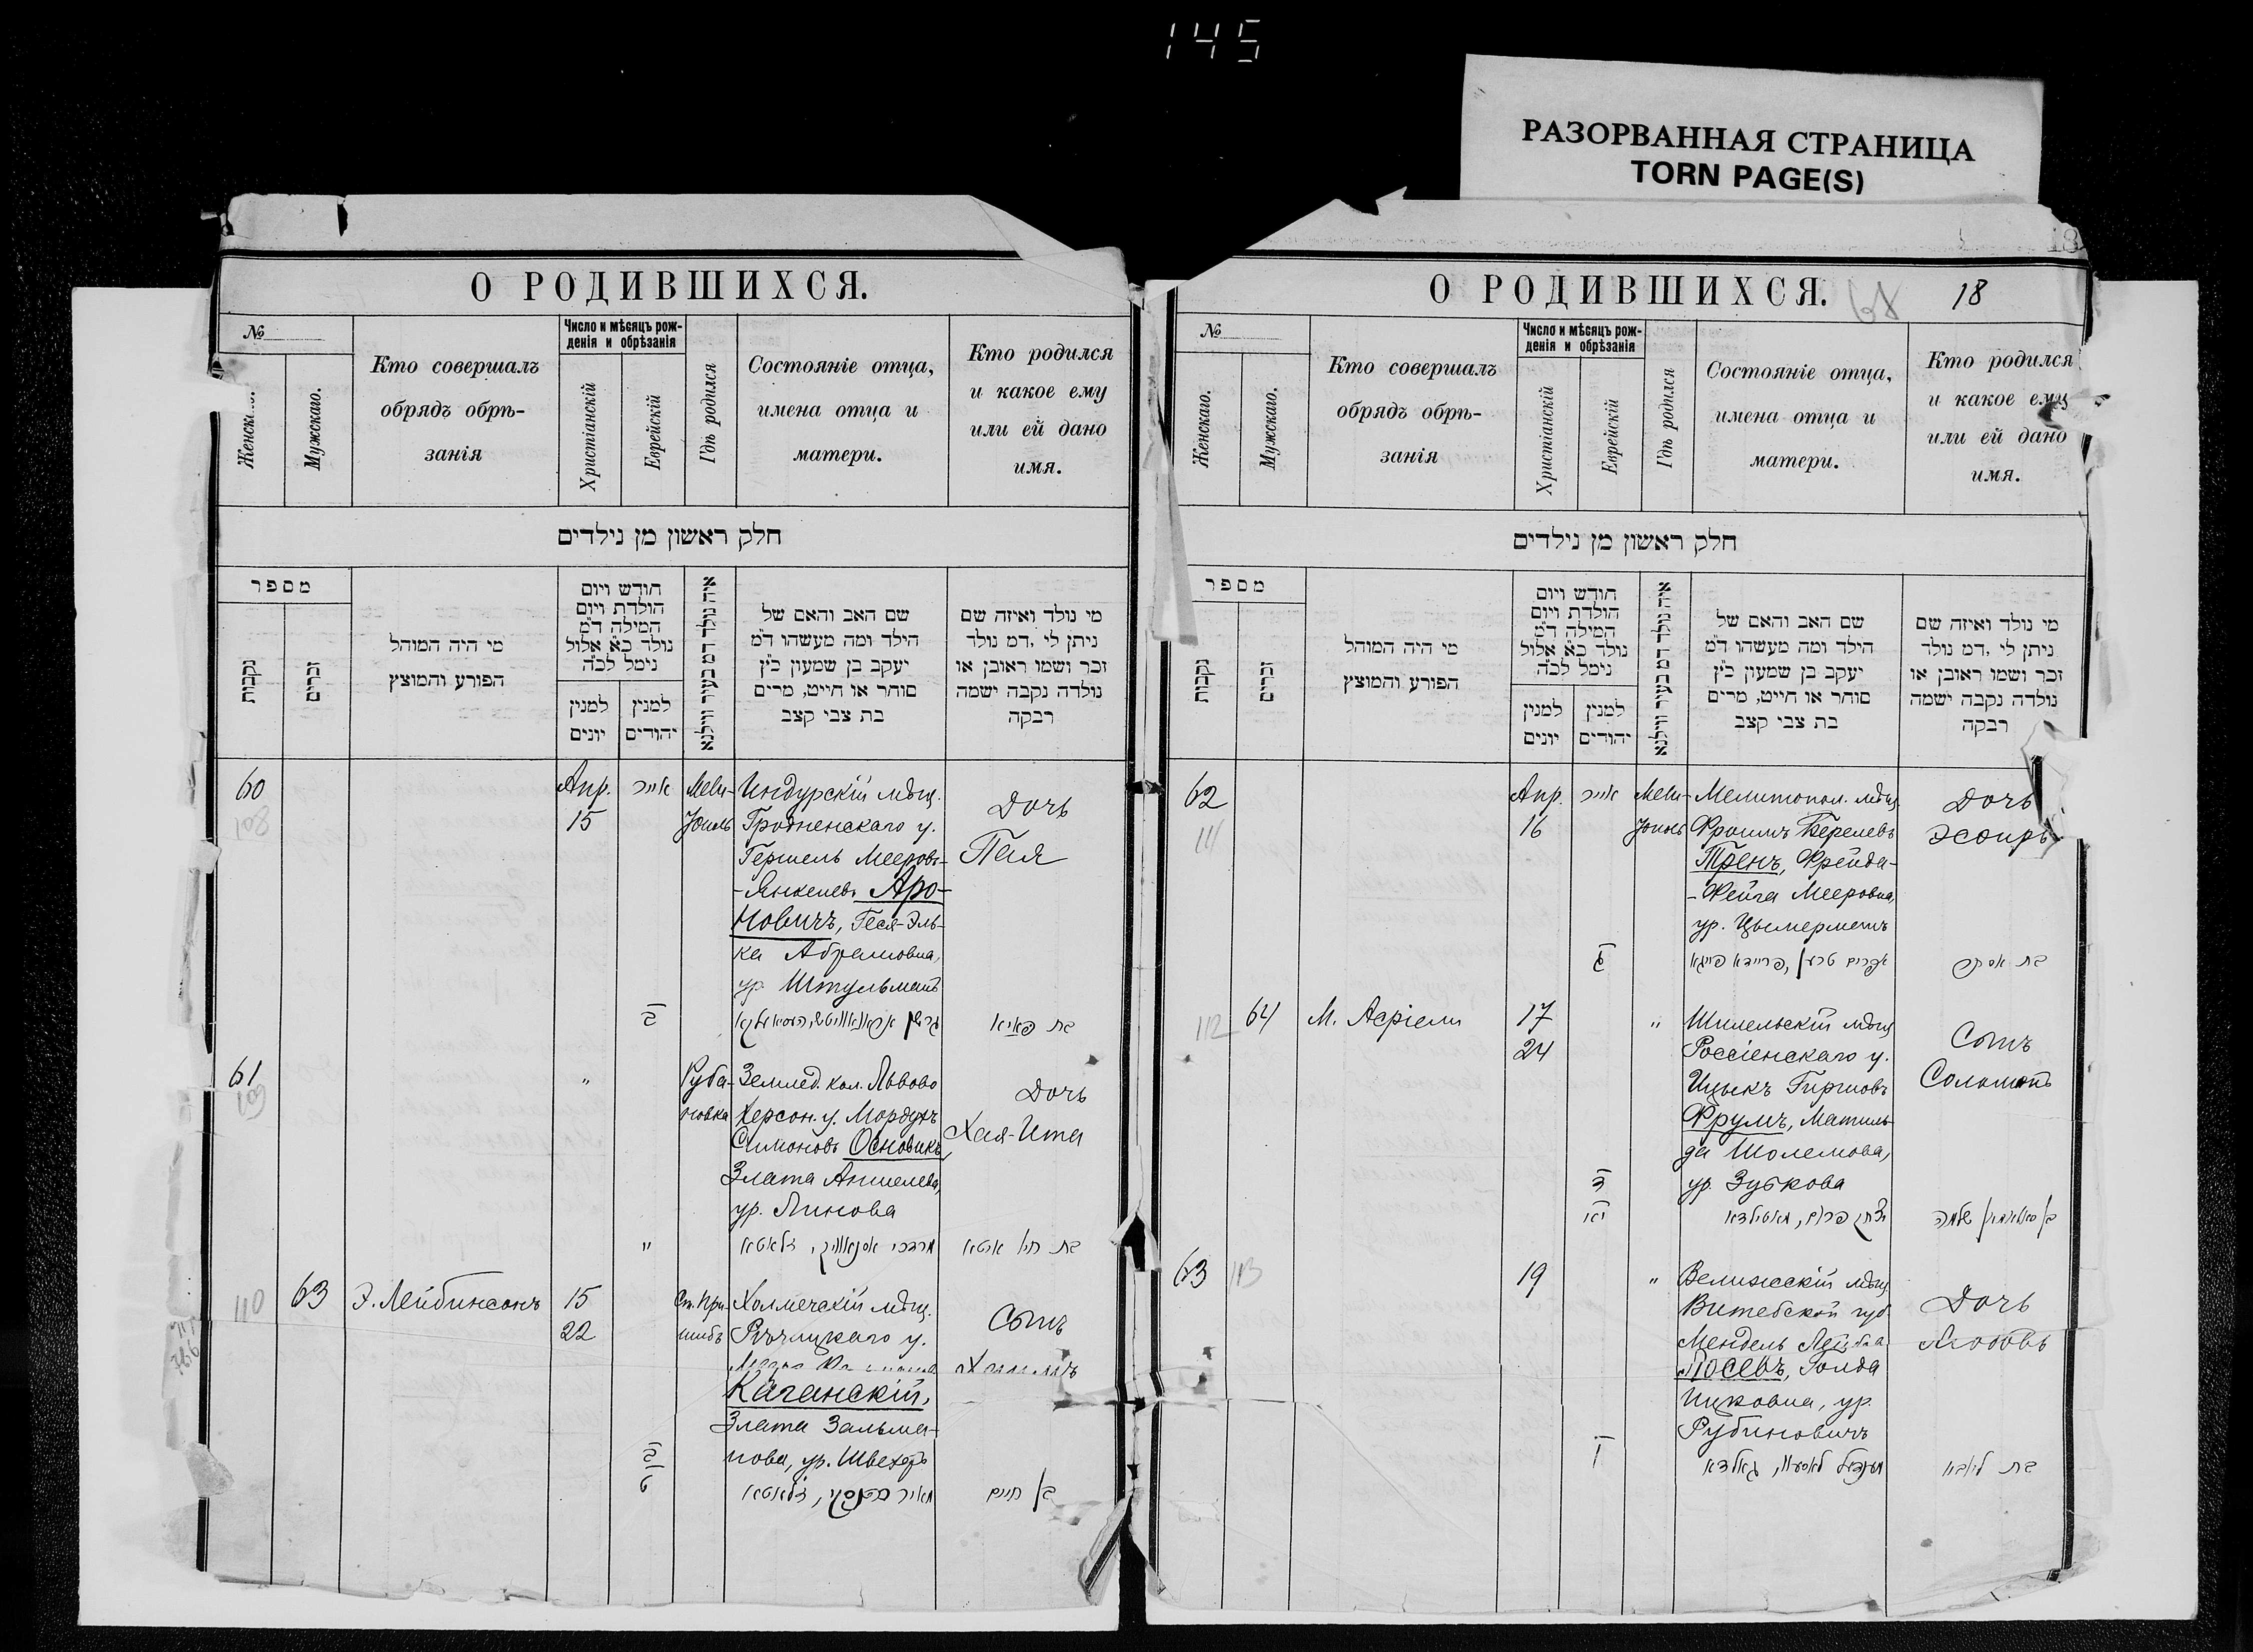 145
РАЗОРВАННАЯ СТРАНИЦА
TORN PAGE(S)
О РОДИВШИХСЯ.
№
Женск
Мужскаго.
Кто совершалъ
обрядъ обрѣ-
занія
Число и мѣсяцъ рож-
денія и обрѣзанія
Христіанскій
Еврейскій
Гдѣ родился
Состояніе отца,
имена отца и
матери.
Кто родился
и какое ему
или ей дано
имя.
חלק ראשון מן נילדים
מספר
נקבות
זכרים
מי היה המוהל
הפורע והמוצץ
חודש ויום
הולדת ויום
המילה ד״מ
נולד כ״א אלול
נימל לכ״ה
למנין
יונים
למנין
יהודים
איה נולד דמ בעיר ווילנא
שם האב והאם של
הילד ומה מעשהו ד״מ
יעקב בן שמעון כ״ץ
סוחר או חייט, מרים
בת צבי קצב
מי נולד ואיזה שם
ניתן לי ,דמ נולד
זכר ושמו ראובן או
נולדה נקבה ישמה
רבקה
60
108
Апр.
15
אייר
Мели-
тополь
Индурскій мѣщ.
Гродненскаго у.
Гершель Мееровъ-
-Янкелевъ Аро-
новичъ, Геся-Эль-
ка Абрамовна,
ур. Штульманъ
Дочь
Пая
בת פאיא
61
109
"
Руба-
новка
Землед. кол. Львово
Херсон. у. Мордухъ
Симоновъ Основикъ,
Злата Аншелева,
ур. Линова
Дочь
Хая-Ита
"
מרדכי אסנאוויק, זלאטא
בת חי' איטא
110
63
Э. Лейбинсонъ
15
22
Ст. При-
шибъ
Холмечскій мѣщ.
Рѣчицкаго у.
Каганскій,
Злата Зальма-
нова, ур. Швехеръ
Сынъ
ט
בן חיים
О РОДИВШИХСЯ.
68
18
№
Женскаго.
Мужскаго.
Кто совершалъ
обрядъ обрѣ-
занія
Число и мѣсяцъ рож-
денія и обрѣзанія
Христіанскій
Еврейскій
Гдѣ родился
Состояніе отца,
имена отца и
матери.
Кто родился
и какое ему
или ей дано
имя.
חלק ראשון מן נילדים
מספר
נקבות
זכרים
מי היה המוהל
הפורע והמוצץ
חודש ויום
הולדת ויום
המילה ד״מ
נולד כ״א אלול
נימל לכ״ה
למנין
יונים
למנין
יהודים
איה נולד דמ בעיר ווילנא
שם האב והאם של
הילד ומה מעשהו ד״מ
יעקב בן שמעון כ״ץ
סוחר או חייט, מרים
בת צבי קצב
מי נולד ואיזה שם
ניתן לי ,דמ נולד
זכר ושמו ראובן או
נולדה נקבה ישמה
רבקה
62
111
Апр.
16
אייר
Мели-
тополь
Мелитопол. мѣщ.
Фроимъ Берелевъ
Тренъ, Фрейда-
-Фейга Мееровна,
ур. Цымерманъ
Дочь
Эсѳирь
ג
אפרים טרען, פריידא פייגא
בת אסתר
112
64
М. Асріели
17
24
"
Шилельскій мѣщ.
Россіенскаго у.
Ицыкъ Гиршовъ
Фрумъ, Матиль-
да Шолемова,
ур. Зубкова
Сынъ
Соломонъ
ד
יא
יצחק פרום, מאטילדא
63
113
19
"
Велижскій мѣщ.
Витебской губ.
Мендель
Лосевъ, Голда
Ицковна, ур.
Рубиновичъ
Дочь
Любовь
ו
מענדיל לאסעוו, גאלדא
בת ליובא